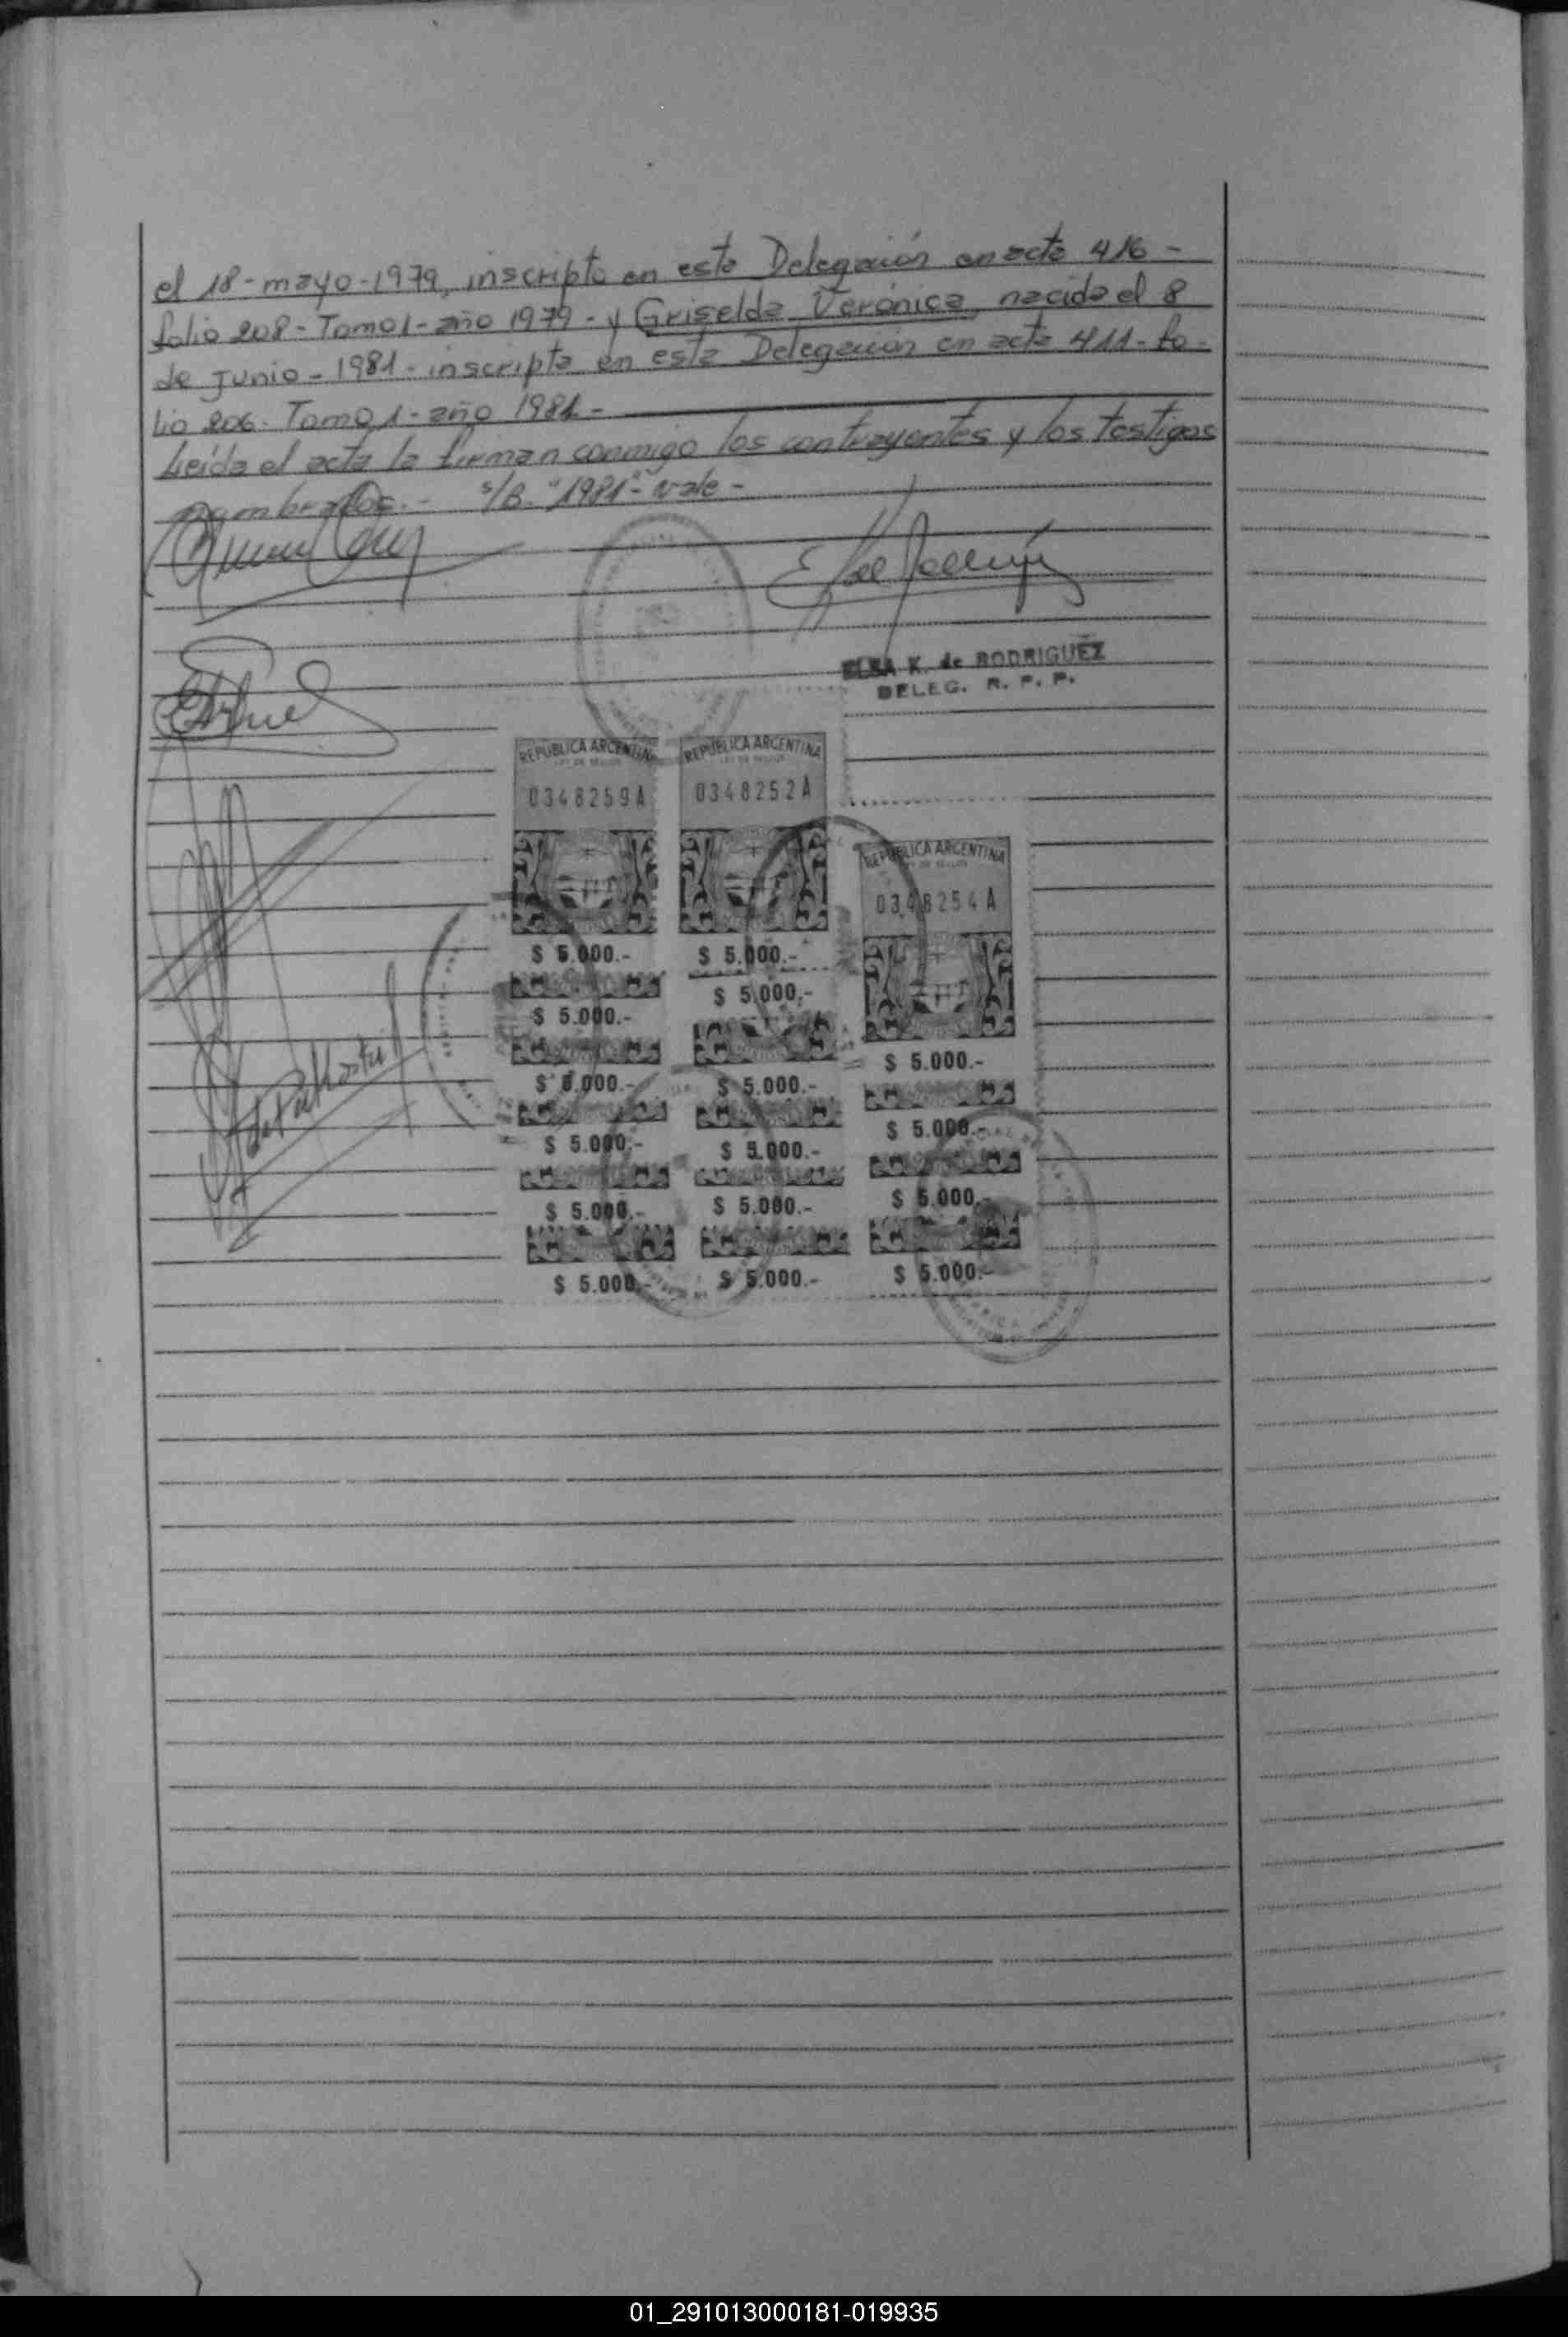 el 18-mayo-1979, inscripto en esta Delegación en acta 416-
folio 208- Tomo 1- año 1979- y Griselda Verónica, nacida el 8
de junio-1981- inscripta en esta Delegación en acta 411- fo-
lio 206- Tomo 1- año 1981-
Leída el acta la firman conmigo los contrayentes y los testigos
nombrados.- s/B. "1981"- vale-
ELSA K. de RODRIGUEZ
DELEG. R. P. P.
REPUBLICA ARGENTINA
LEY DE SELLOS
0348259A
$ 5.000.-
$ 5.000.-
$ 5.000.-
$ 5.000.-
$ 5.000.-
$ 5.000.-
REPUBLICA ARGENTINA
LEY DE SELLOS
0348252A
$ 5.000.-
$ 5.000.-
$ 5.000.-
$ 5.000.-
$ 5.000.-
$ 5.000.-
REPUBLICA ARGENTINA
LEY DE SELLOS
0348254A
$ 5.000.-
$ 5.000.-
$ 5.000.-
$ 5.000.-
01_291013000181-019935